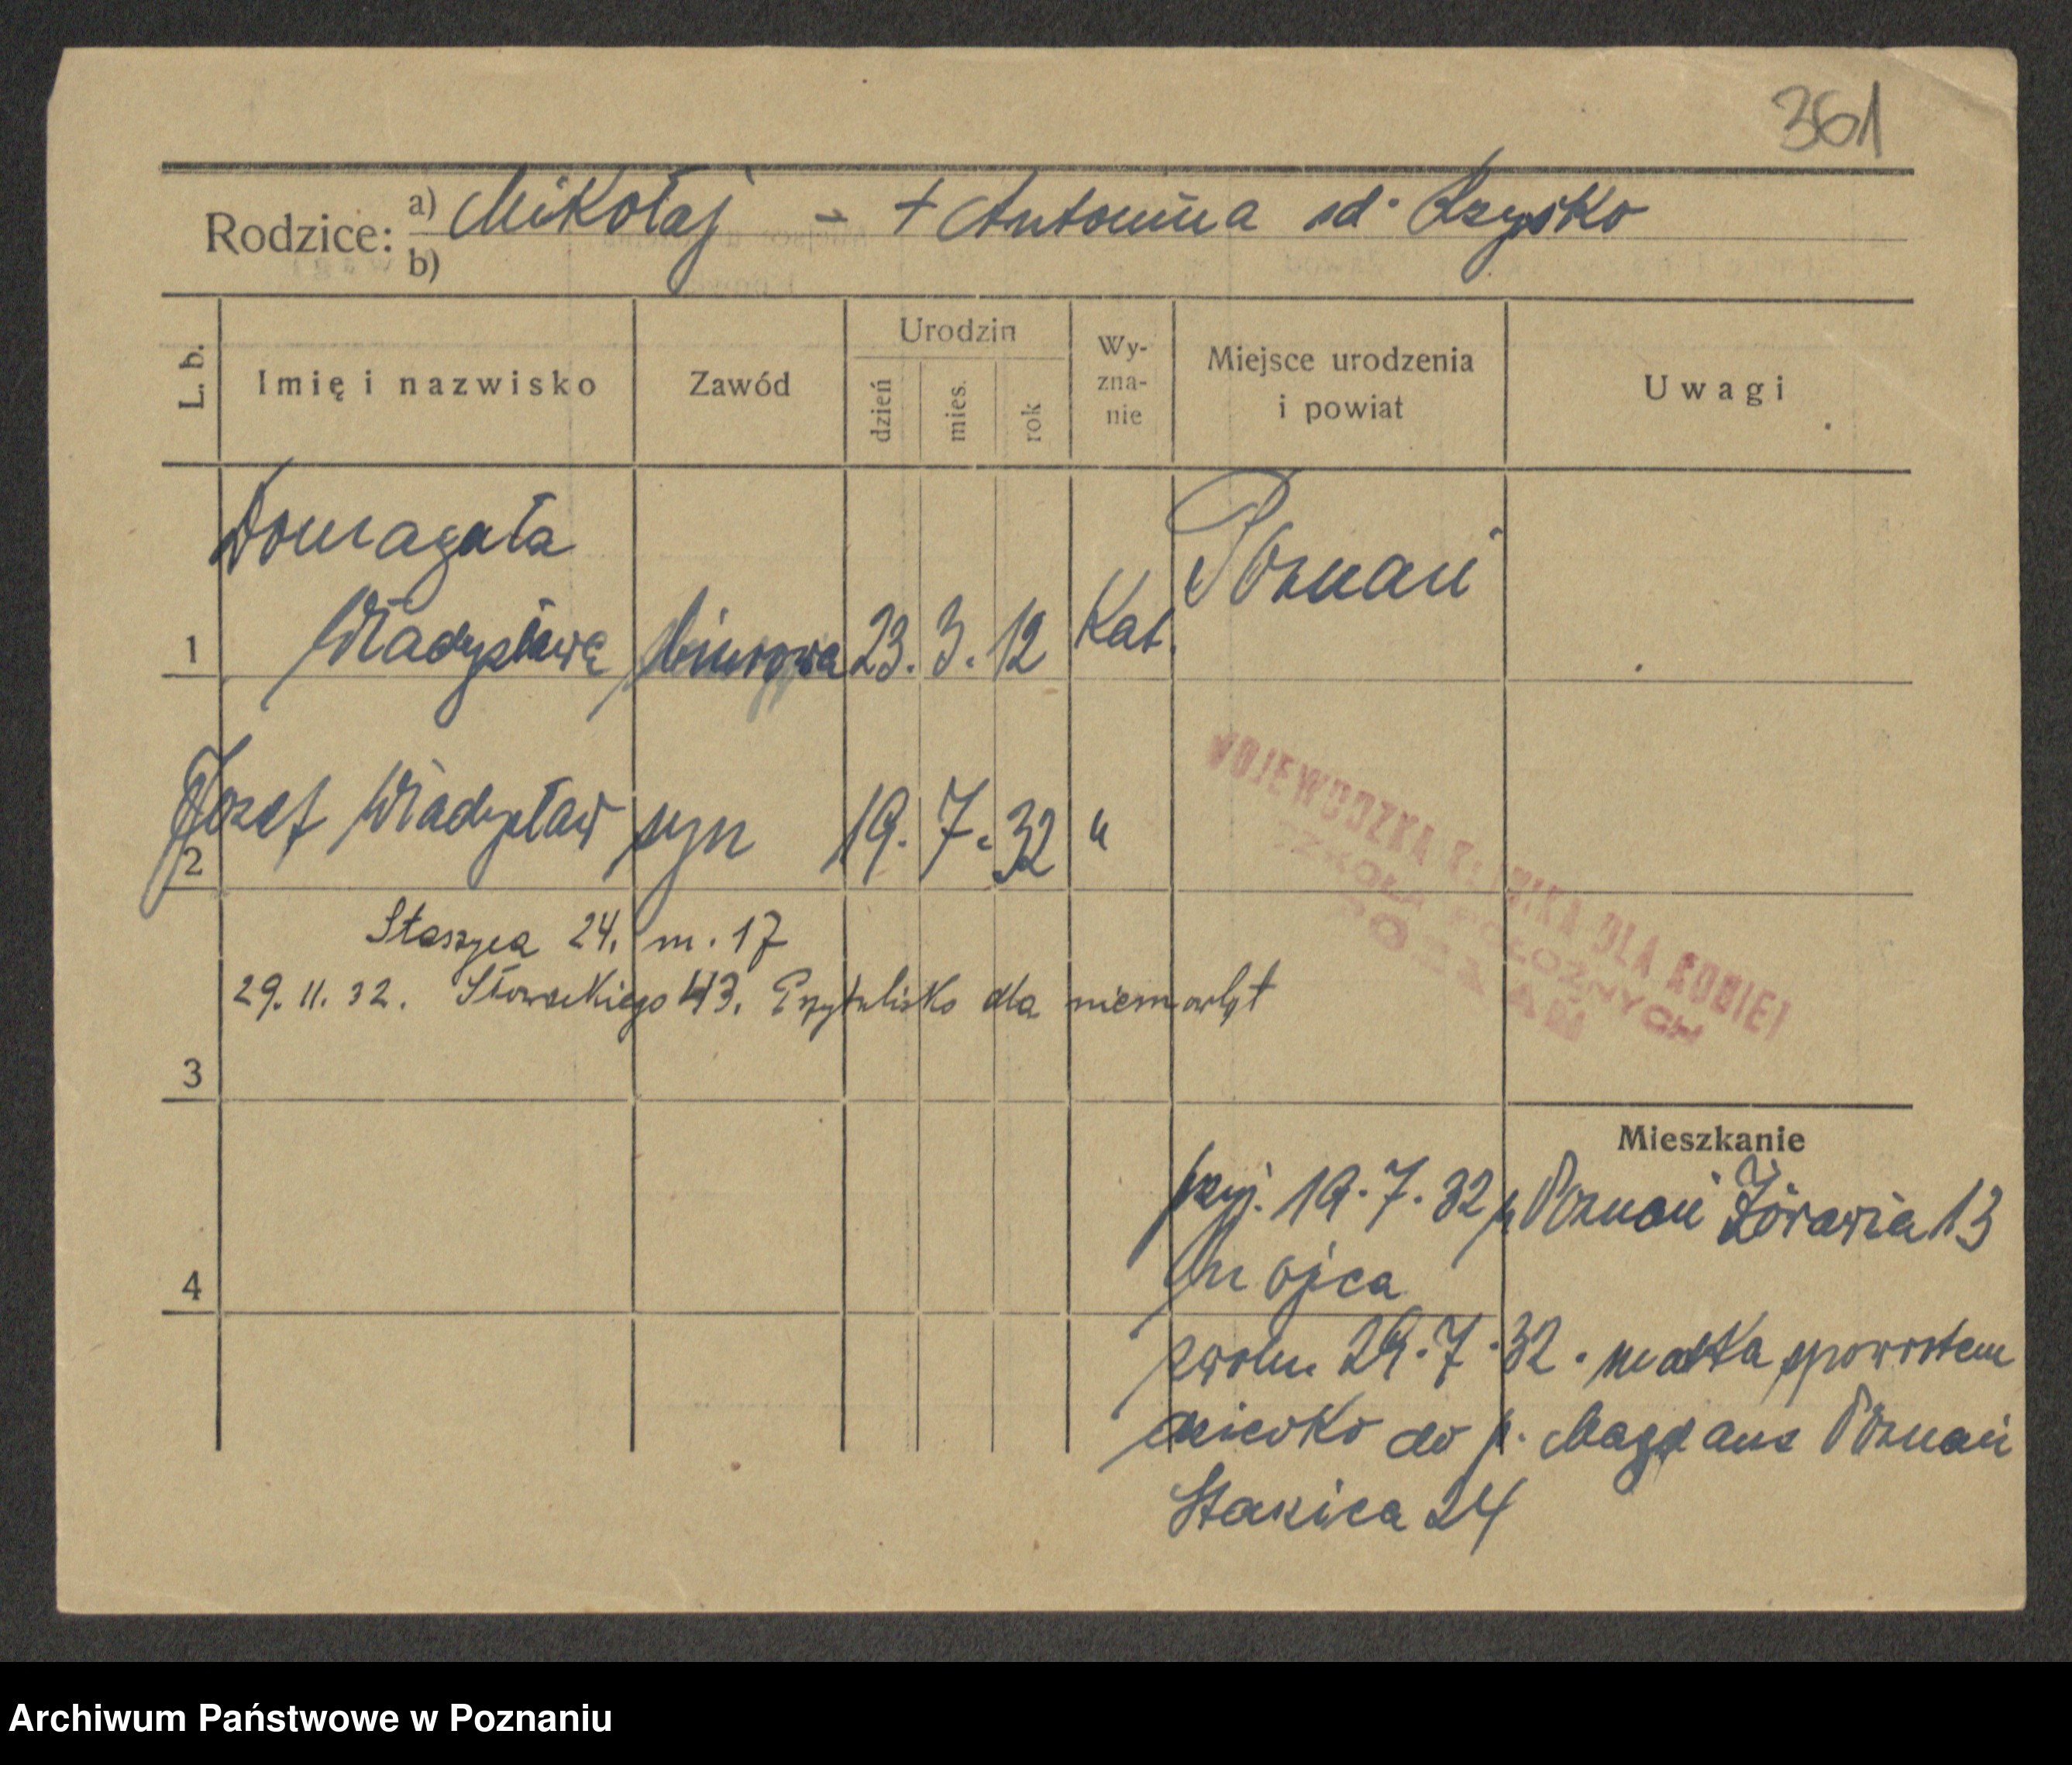 361
Rodzice: a) Mikołaj - + Antonina sd.
b)
L. b. Imię i nazwisko Zawód Urodzin dzień mies. rok Wy-zna-nie Miejsce urodzenia i powiat Uwagi
Domagała Poznań
1 Władysława biurowa 23. 3. 12 Kat.
2 Józef Władysław syn 19. 7. 32 "
WOJEWÓDZKA KLINIKA DLA KOBIET
SZKOŁA POŁOŻNYCH
POZNAŃ
Staszyca 24. m. 17
29. 11. 32. Słowackiego 43. Przytulisko dla niemowląt
3
Mieszkanie
przyj. 19. 7. 32 Poznań Żórawia 13
4 ojca
zwoln. 29. 7. 32. matka spowrotem
dziecko do p. Magdans Poznań
Staszica 24
Archiwum Państwowe w Poznaniu